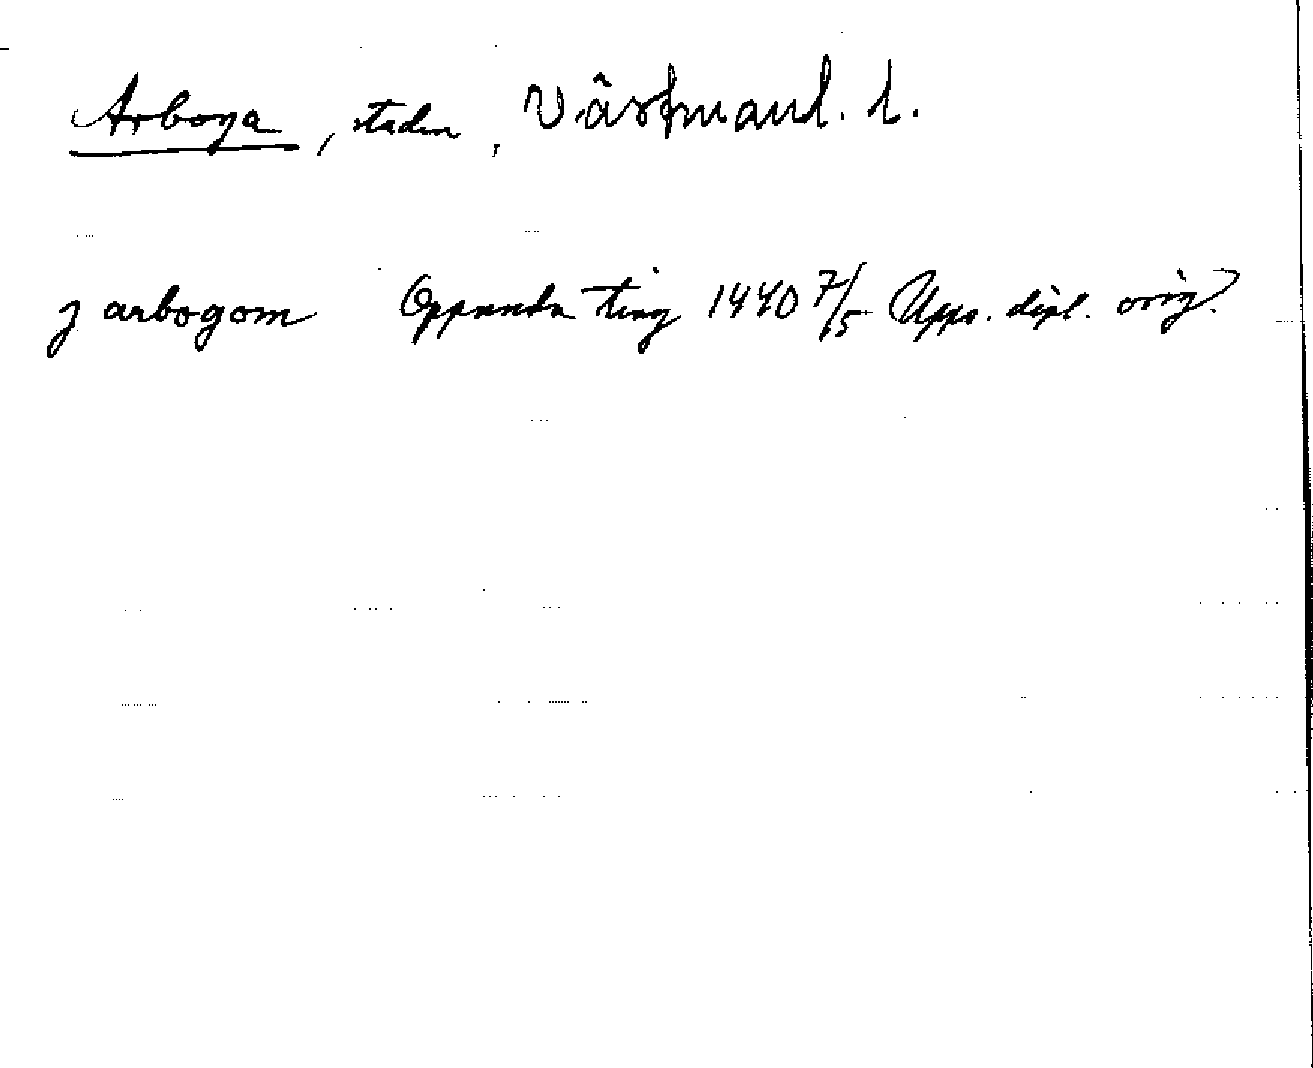 Arboga, staden, Västmanl. l.
j arbogom Oppunda ting 1440 7/5 Upps. dipl. orig.